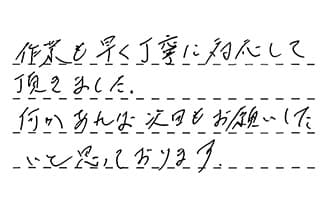 作業も早く丁寧に対応して
頂きました.
何かあれば次回もお願いした
いと思っております.